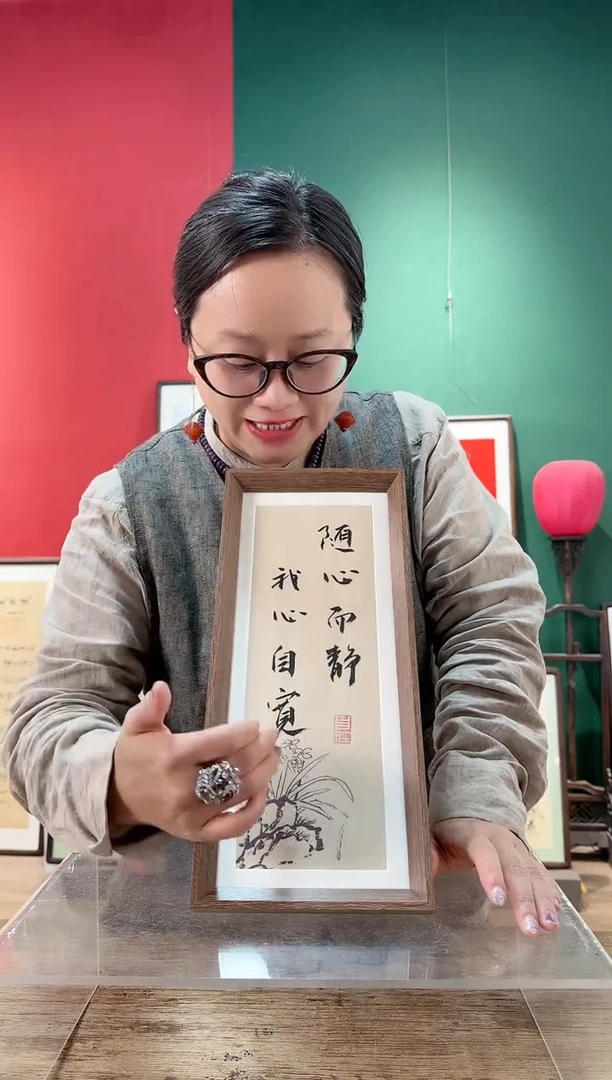 随心而静
我心自寬